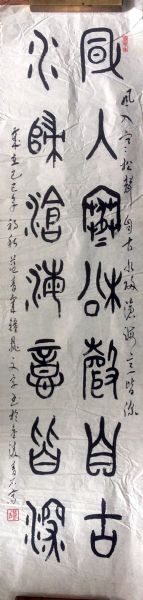 風入寒松聲自古水歸滄海意皆深
風入寒松聲自古
水歸滄海意皆深
乙巳年初秋